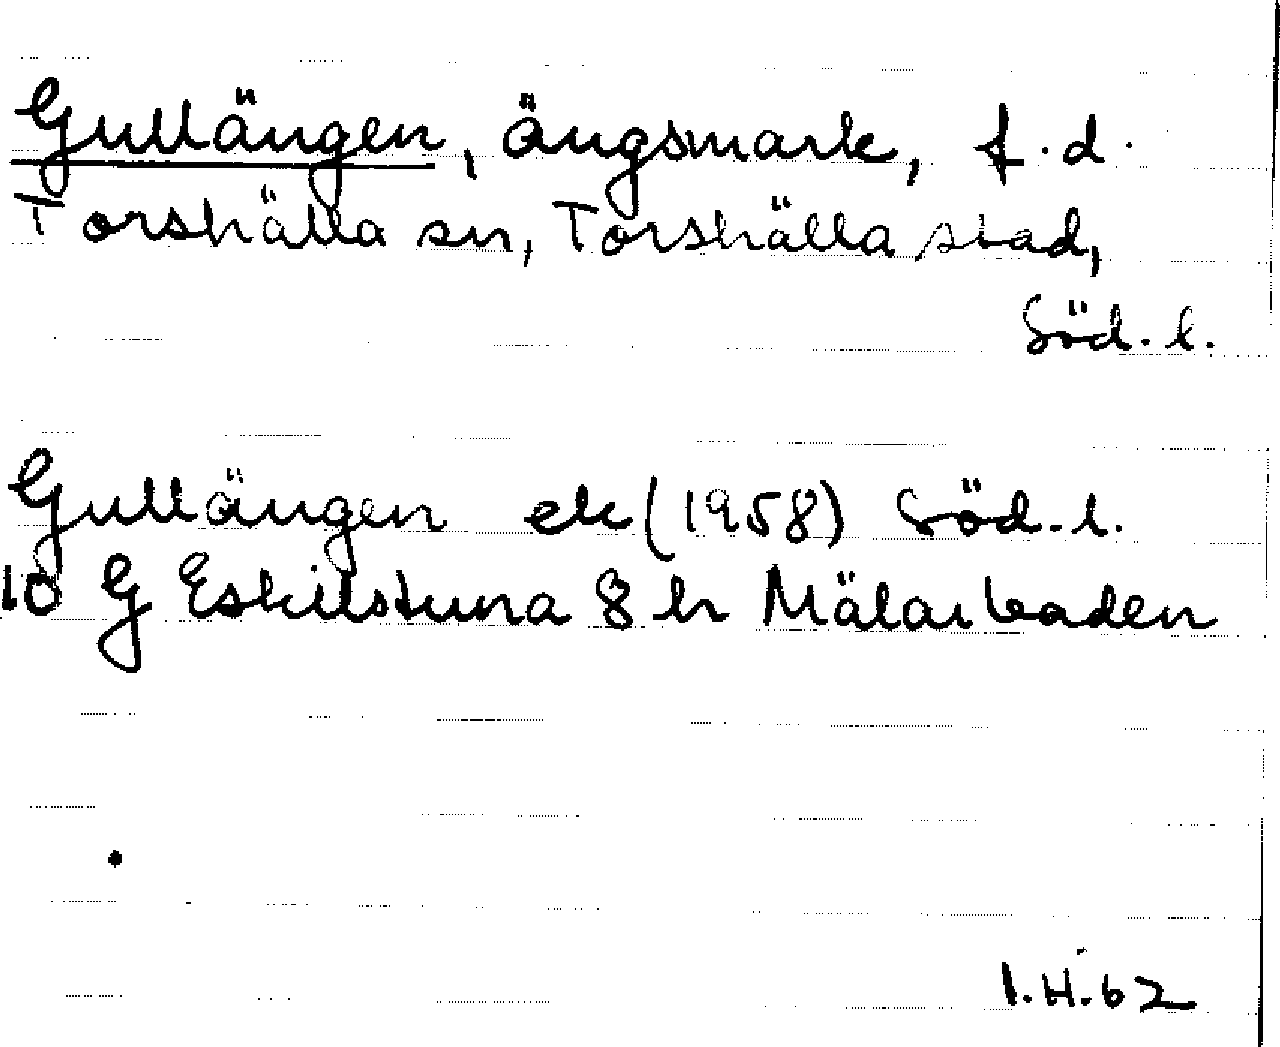 Gullängen, ängsmark, f.d.
Torshälla sn, Torshälla stad,
Söd. l.
Gullängen ek (1958) Söd. l.
10 G Eskilstuna 8 h Mälarbaden
I.H. 62